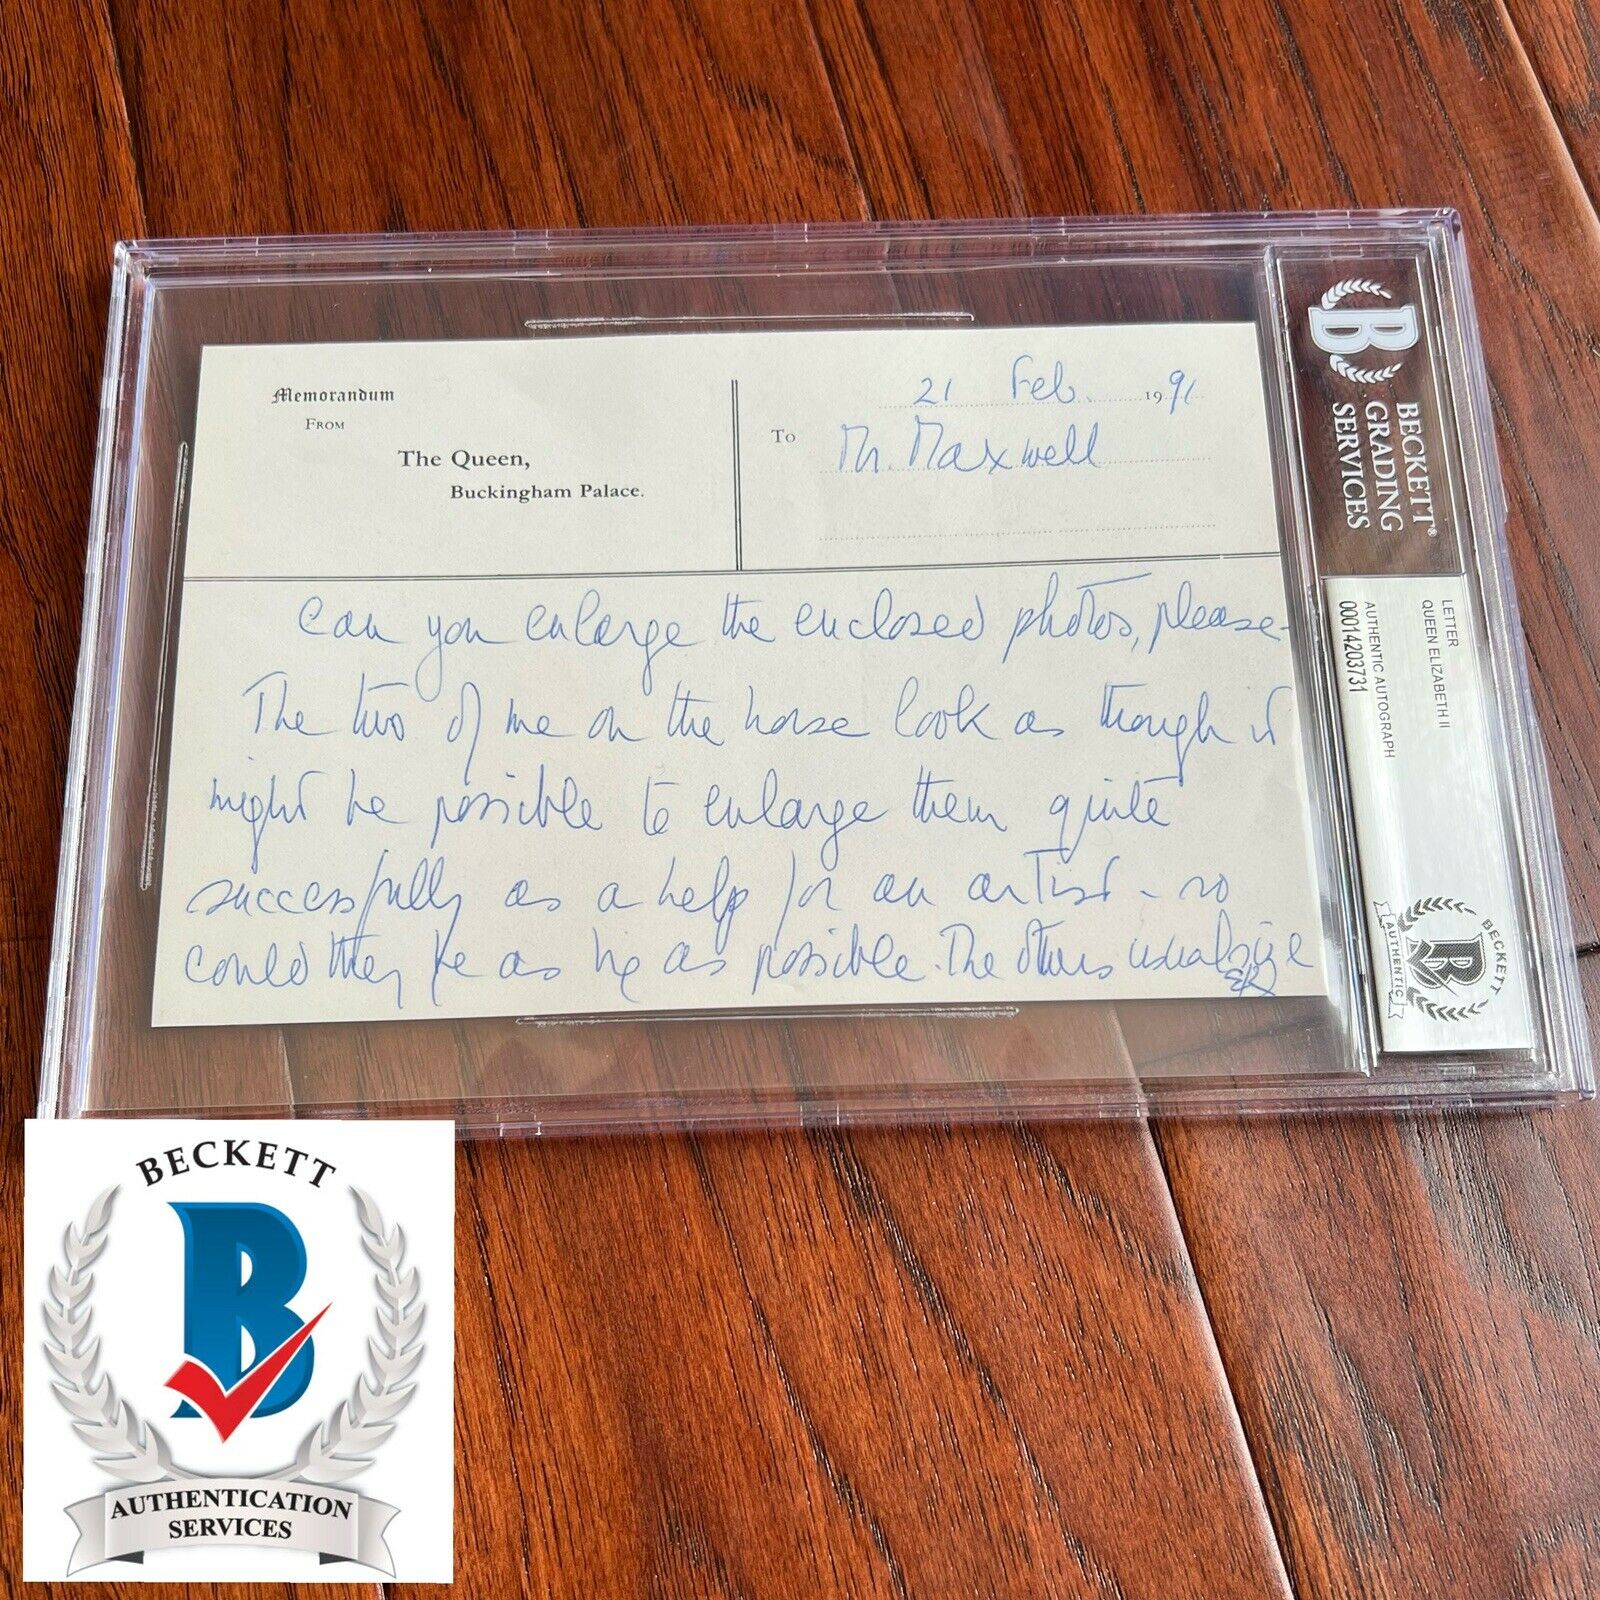 Memorandum
FROM
The Queen,
Buckingham Palace.
21 Feb. 1991
TO Mr. Maxwell
Can you enlarge the enclosed photos, please.
The two of me on the horse look as though it
might be possible to enlarge them quite
successfully as a help for an artist - so
could they be as big as possible. The others usual size
ER
B
BECKETT®
GRADING
SERVICES
LETTER
QUEEN ELIZABETH II
AUTHENTIC AUTOGRAPH
00014203731
BECKETT
B
AUTHENTIC
BECKETT
B
AUTHENTICATION
SERVICES